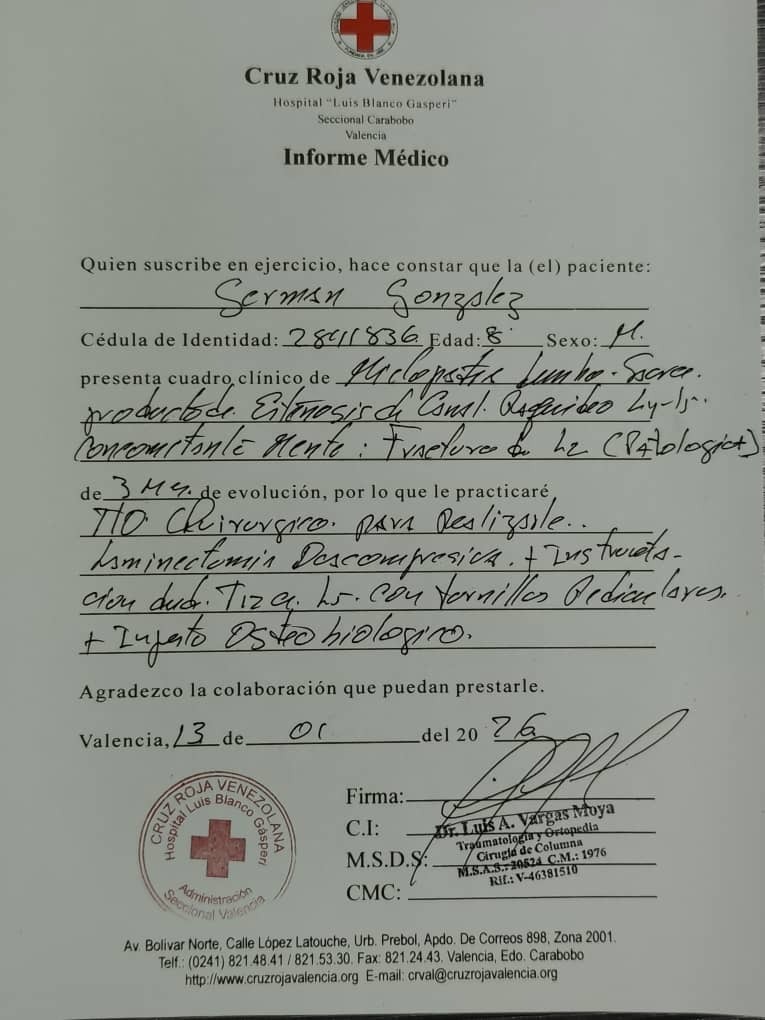 Cruz Roja Venezolana
Hospital "Luis Blanco Gasperi"
Seccional Carabobo
Valencia
Informe Médico
Quien suscribe en ejercicio, hace constar que la (el) paciente:
German Gonzalez
Cédula de Identidad: Edad: 8 Sexo: M.
presenta cuadro clínico de Mielopatia Lumbo-Sacra.
producto de de Canal Raquideo L4-L5.
Concomitante Mente: Fractura de L2 (Patologica)
de 3 de evolución, por lo que le practicaré
TTO Chirurgico. para Realizarle..
Laminectomia Descompresiva. +
T12 a L5. Con tornillos Pediculares.
+ Injerto Osteobiologico.
Agradezco la colaboración que puedan prestarle.
Valencia, 13 de 01 del 20 26
Firma:
C.I:
M.S.D.S:
CMC:
Dr. Luis A. Vargas Moya
Traumatología y Ortopedia
Cirugía de Columna
M.S.A.S.: 20524 C.M.: 1976
Rif.: V-46381510
CRUZ ROJA VENEZOLANA
Hospital Luis Blanco Gásperi
Administración
Seccional Valencia
Av. Bolivar Norte, Calle López Latouche, Urb. Prebol, Apdo. De Correos 898, Zona 2001.
Telf.: (0241) 821.48.41 / 821.53.30. Fax: 821.24.43. Valencia, Edo. Carabobo
http://www.cruzrojavalencia.org E-mail: crval@cruzrojavalencia.org